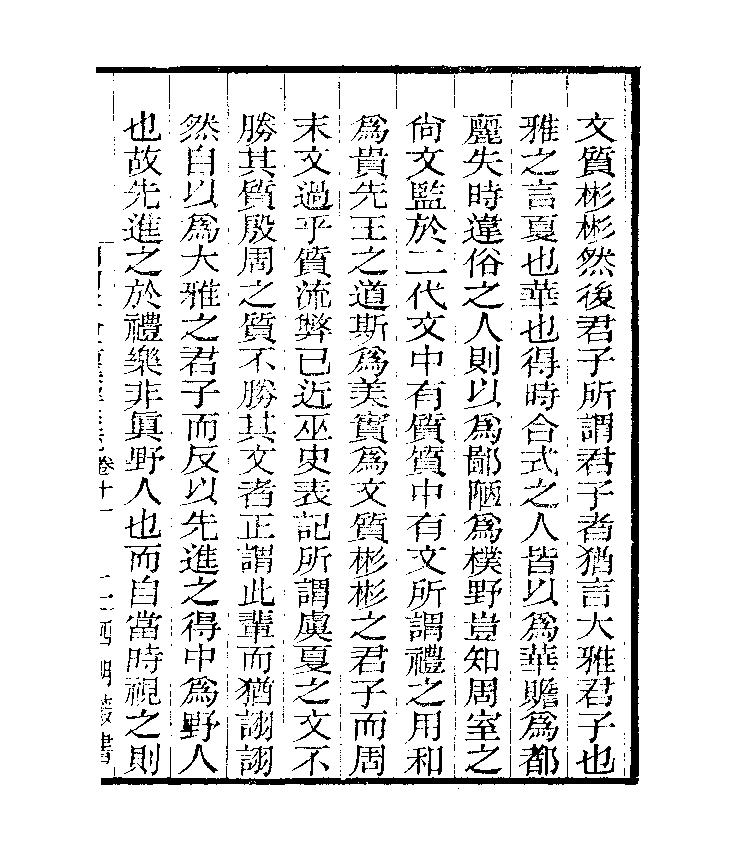 文質彬彬然後君子所謂君子者猶言大雅君子也
雅之言夏也華也得時合式之人皆以為華贍為都
麗失時違俗之人則以為鄙陋為樸野豈知周室之
尚文監於二代文中有質質中有文所謂禮之用和
為貴先王之道斯為美實為文質彬彬之君子而周
末文過乎質流弊已近巫史表記所謂虞夏之文不
勝其質殷周之質不勝其文者正謂此輩而猶詡詡
然自以為大雅之君子而反以先進之得中為野人
也故先進之於禮樂非眞野人也而自當時視之則
卷十一 二 四明叢書